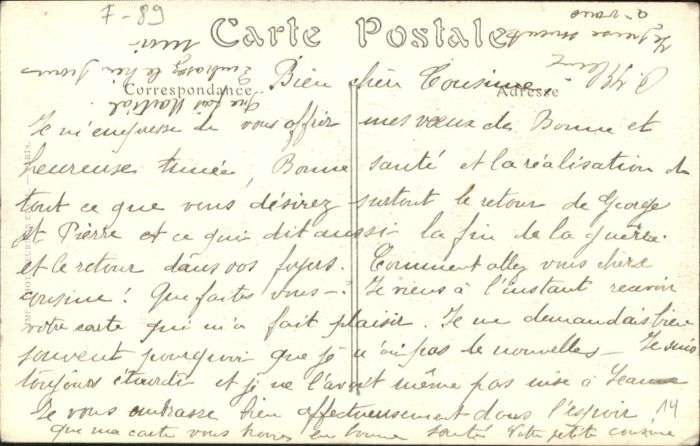 7-89
Carte Postale
Correspondance
Adresse
Bien chère Cousine,
Je m'empresse de vous offrir mes vœux de Bonne et
heureuse Année, Bonne santé et la réalisation de
tout ce que vous désirez surtout le retour de George
et Pierre et ce qui dit aussi la fin de la guerre
et le retour dans vos foyers. Comment allez vous chère
cousine! Que faites vous -? Je viens à l'instant recevoir
votre carte qui m'a fait plaisir. Je me demandais bien
souvent pourquoi que je n'ai pas de nouvelles - Je suis
toujours étourdi et je ne l'avait même pas mise à
Je vous embrasse bien affectueusement dans l'espoir
que ma carte vous trouve en bonne santé Votre petite cousine
14
Embrassez le bien
Que fait Martial.
Je pense souvent
à vous